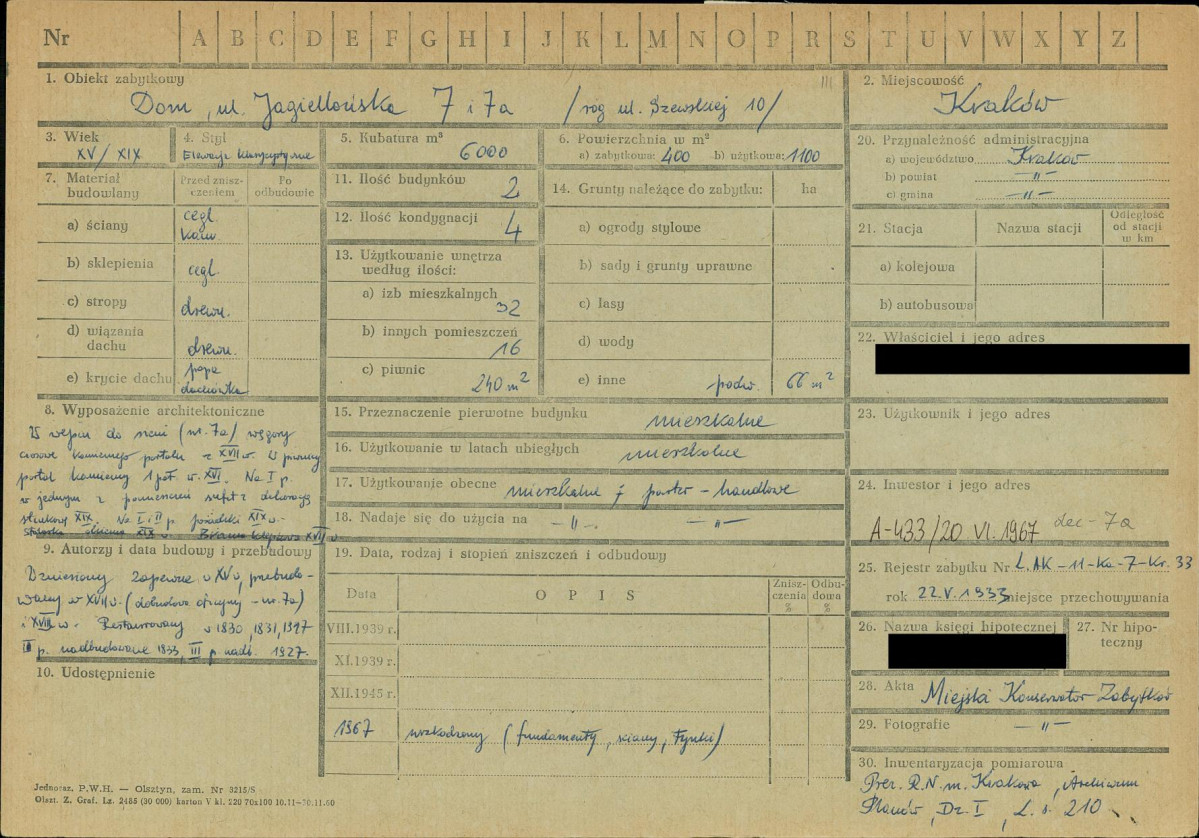 Nr A B C D E F G H I J K L M N O P R S T U V W X Y Z
1. Obiekt zabytkowy
Dom, ul. Jagiellońska 7 i 7a /róg ul. Szewskiej 10/
2. Miejscowość
Kraków
3. Wiek
XV/XIX
4. Styl
Elewacje klasycystyczne
5. Kubatura m³
6000
6. Powierzchnia w m²
a) zabytkowa: 400 b) użytkowa: 1100
7. Materiał budowlany
Przed zniszczeniem
Po odbudowie
a) ściany
cegl.
kam.
b) sklepienia
cegl.
c) stropy
drewn.
d) wiązania dachu
drewn.
e) krycie dachu
papa
dachówka
8. Wyposażenie architektoniczne
W wejściu do sieni (nr. 7a) węgary
ciosowe kamiennego portalu z XVII w. W piwnicy
portal kamienny 1 poł. w. XVI. Na I p.
w jednym z pomieszczeń sufit z dekoracją
stiukową XIX. Na I i II p. posadzki XIX w.
XIX w. XVII w.
9. Autorzy i data budowy i przebudowy
Wzniesiony zapewne w XV w, przebudo-
wany w XVII w. (dobudowa oficyny - nr. 7a)
i XVIII w. Restaurowany w 1830, 1831, 1897
II p. nadbudowane 1833, III p. nadb. 1927.
10. Udostępnienie
11. Ilość budynków
2
12. Ilość kondygnacji
4
13. Użytkowanie wnętrza według ilości:
a) izb mieszkalnych
32
b) innych pomieszczeń
16
c) piwnic
240 m²
14. Grunty należące do zabytku: ha
a) ogrody stylowe
b) sady i grunty uprawne
c) lasy
d) wody
e) inne podw. 66 m²
15. Przeznaczenie pierwotne budynku
mieszkalne
16. Użytkowanie w latach ubiegłych
mieszkalne
17. Użytkowanie obecne mieszkalne, parter - handlowe
18. Nadaje się do użycia na - " - - " -
19. Data, rodzaj i stopień zniszczeń i odbudowy
Data
O P I S
Zniszczenia %
Odbudowa %
VIII.1939 r.
XI.1939 r.
XII.1945 r.
1967 uszkodzony (fundamenty, ściany, tynki)
20. Przynależność administracyjna
a) województwo Kraków
b) powiat - " -
c) gmina - " -
21. Stacja
Nazwa stacji
Odległość od stacji w km
a) kolejowa
b) autobusowa
22. Właściciel i jego adres
23. Użytkownik i jego adres
24. Inwestor i jego adres
A-433/20 VI. 1967 dec - 7a
25. Rejestr zabytku Nr Ł.AK-11-Ka-7-Kr. 33
rok 22.V.1933 miejsce przechowywania
26. Nazwa księgi hipotecznej
27. Nr hipoteczny
28. Akta Miejski Konserwator Zabytków
29. Fotografie - " -
30. Inwentaryzacja pomiarowa
Prez. R.N. m. Krakowa, Archiwum
Planów, Dz. I, L. s. 210
Jednoraz. P.W.H. — Olsztyn, zam. Nr 3215/S
Olszt. Z. Graf. Lz. 2485 (30 000) karton V kl. 220 70x100 10.11-30.11.60